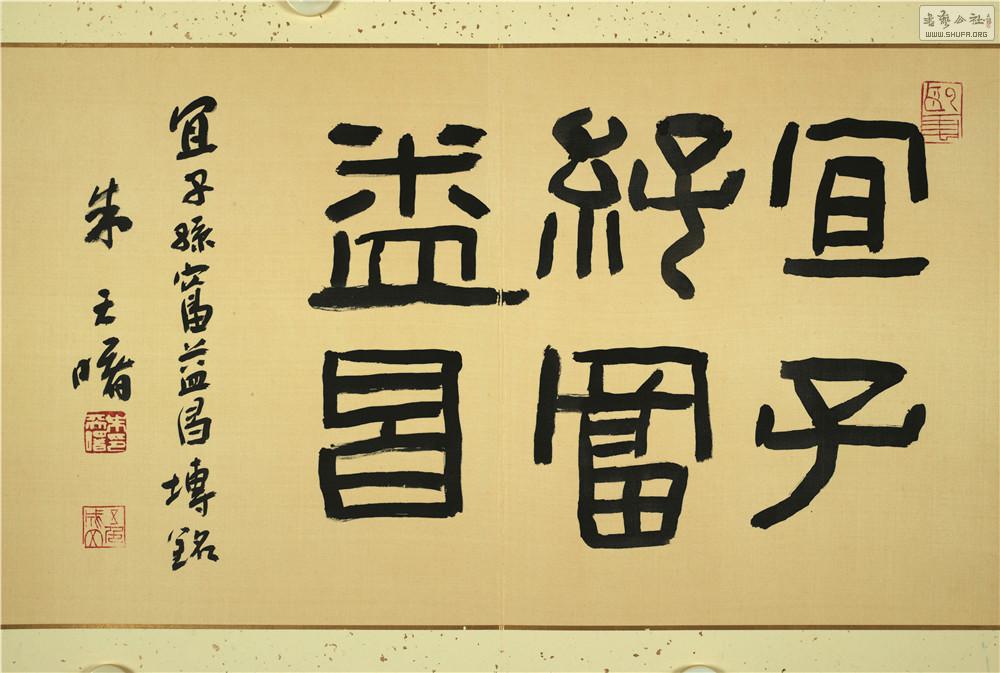 宜子
孫富
益昌
宜子孫富益昌塼銘
朱天曙
书艺公社
WWW.SHUFA.ORG